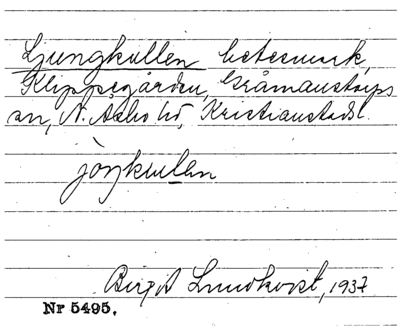 Ljungkullen betesmark,
Klippsgården, Gråmanstorps
sn, N. Åsbo hd, Kristianstads l.
jöŋkulen
Birgit Lundkvist, 1937
Nr 5495.